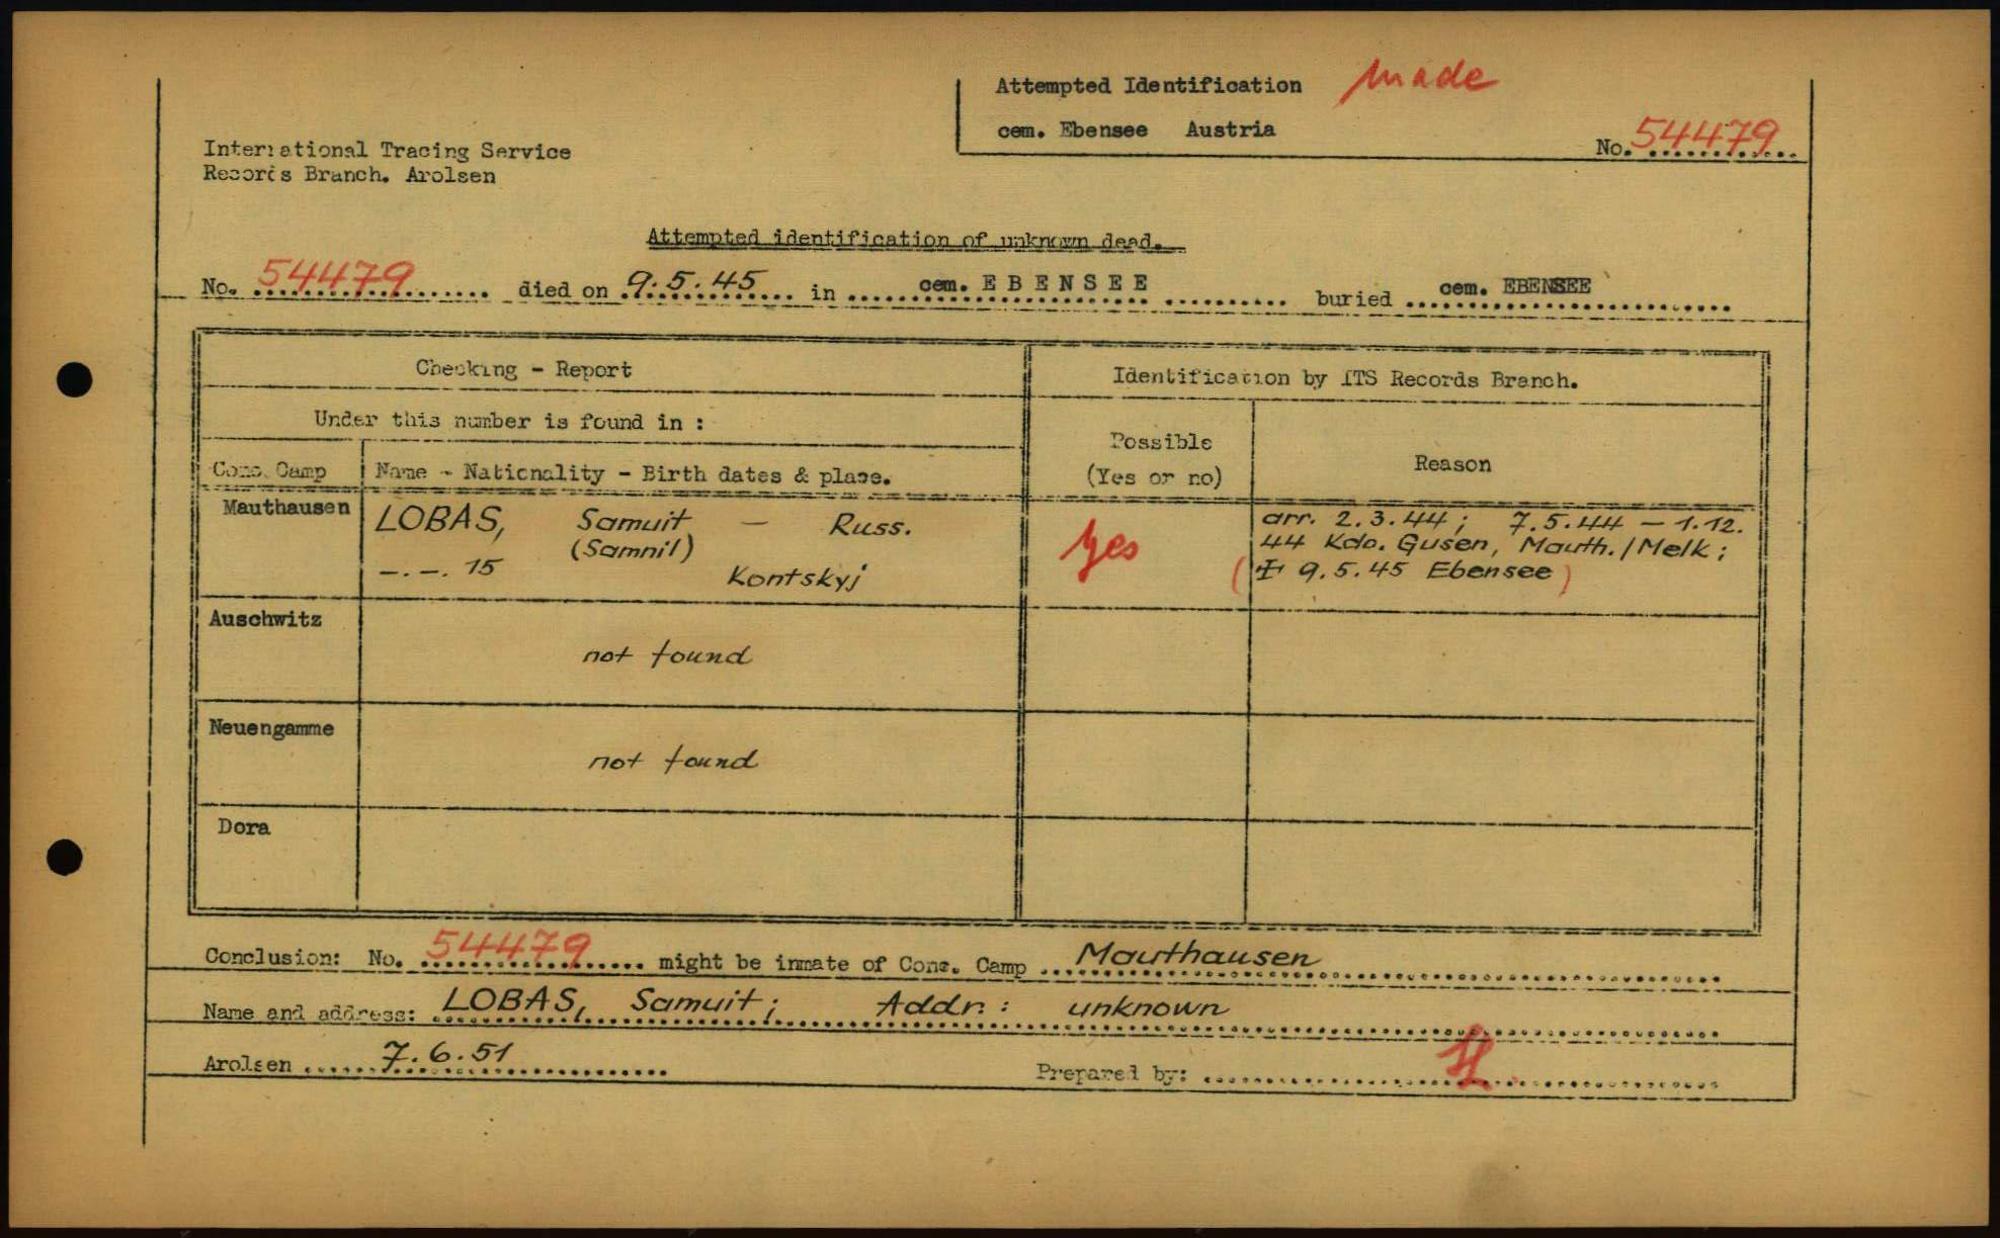 Attempted Identification made
cem. Ebensee Austria
No. 54479
International Tracing Service
Records Branch. Arolsen
Attempted identification of unknown dead.
No. 54479 died on 9.5.45 in cem. EBENSEE buried cem. EBENSEE
Checking - Report
Identification by ITS Records Branch.
Under this number is found in :
Possible
(Yes or no)
Reason
Conc. Camp
Name - Nationality - Birth dates & place.
Mauthausen
LOBAS, Samuit — Russ.
(Samnil)
-.-. 15 Kontskyj
yes
arr. 2.3.44; 7.5.44 - 1.12.
44 Kdo. Gusen, Mauth./Melk;
( ☨ 9.5.45 Ebensee )
Auschwitz
not found
Neuengamme
not found
Dora
Conclusion: No. 54479 might be inmate of Conc. Camp Mauthausen
Name and address: LOBAS, Samuit; Addr.: unknown
Arolsen 7.6.51
Prepared by: